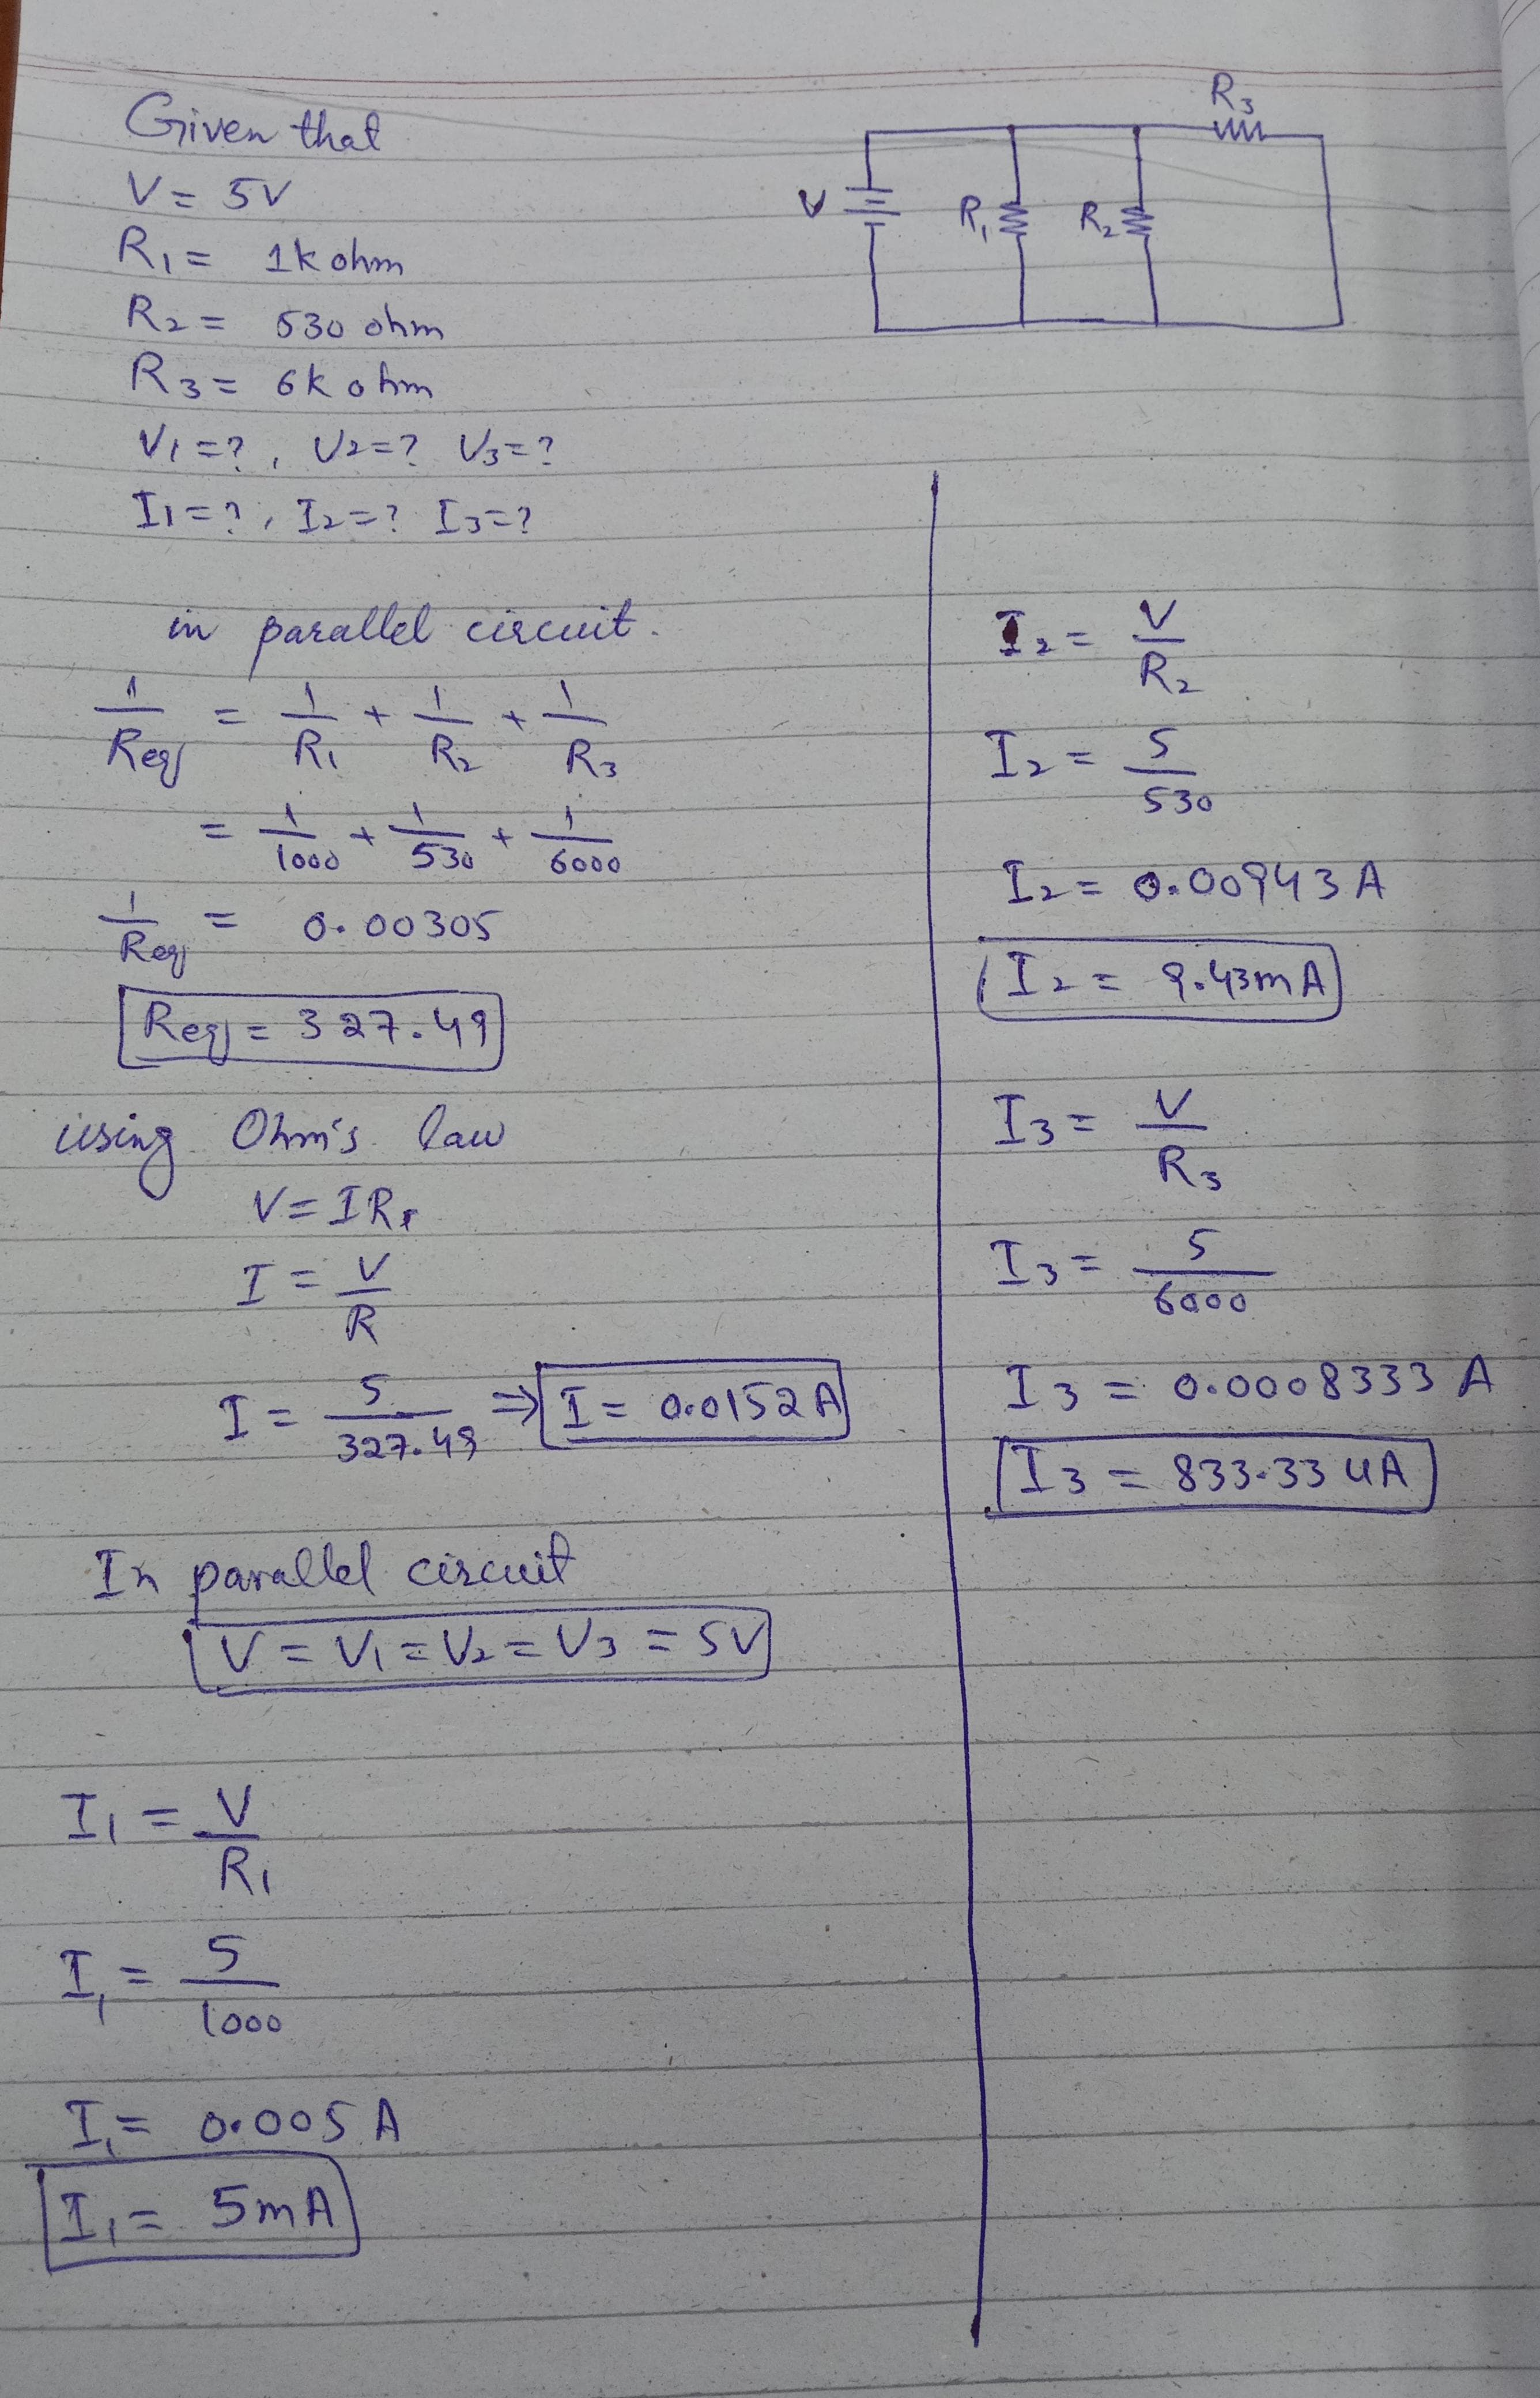 Given that
V = 5V
R1 = 1k ohm
R2 = 530 ohm
R3 = 6k ohm
V1 = ?, V2 = ? V3 = ?
I1 = ?, I2 = ? I3 = ?
R3
V
R1
R2
in parallel circuit.
1/Req = 1/R1 + 1/R2 + 1/R3
= 1/1000 + 1/530 + 1/6000
1/Req = 0.00305
Req = 327.49
using Ohm's law
V = IR
I = V/R
I = 5/327.49 ⇒ I = 0.0152A
In parallel circuit
V = V1 = V2 = V3 = 5V
I1 = V/R1
I1 = 5/1000
I1 = 0.005 A
I1 = 5mA
I2 = V/R2
I2 = 5/530
I2 = 0.00943 A
I2 = 9.43mA
I3 = V/R3
I3 = 5/6000
I3 = 0.0008333 A
I3 = 833.33 uA